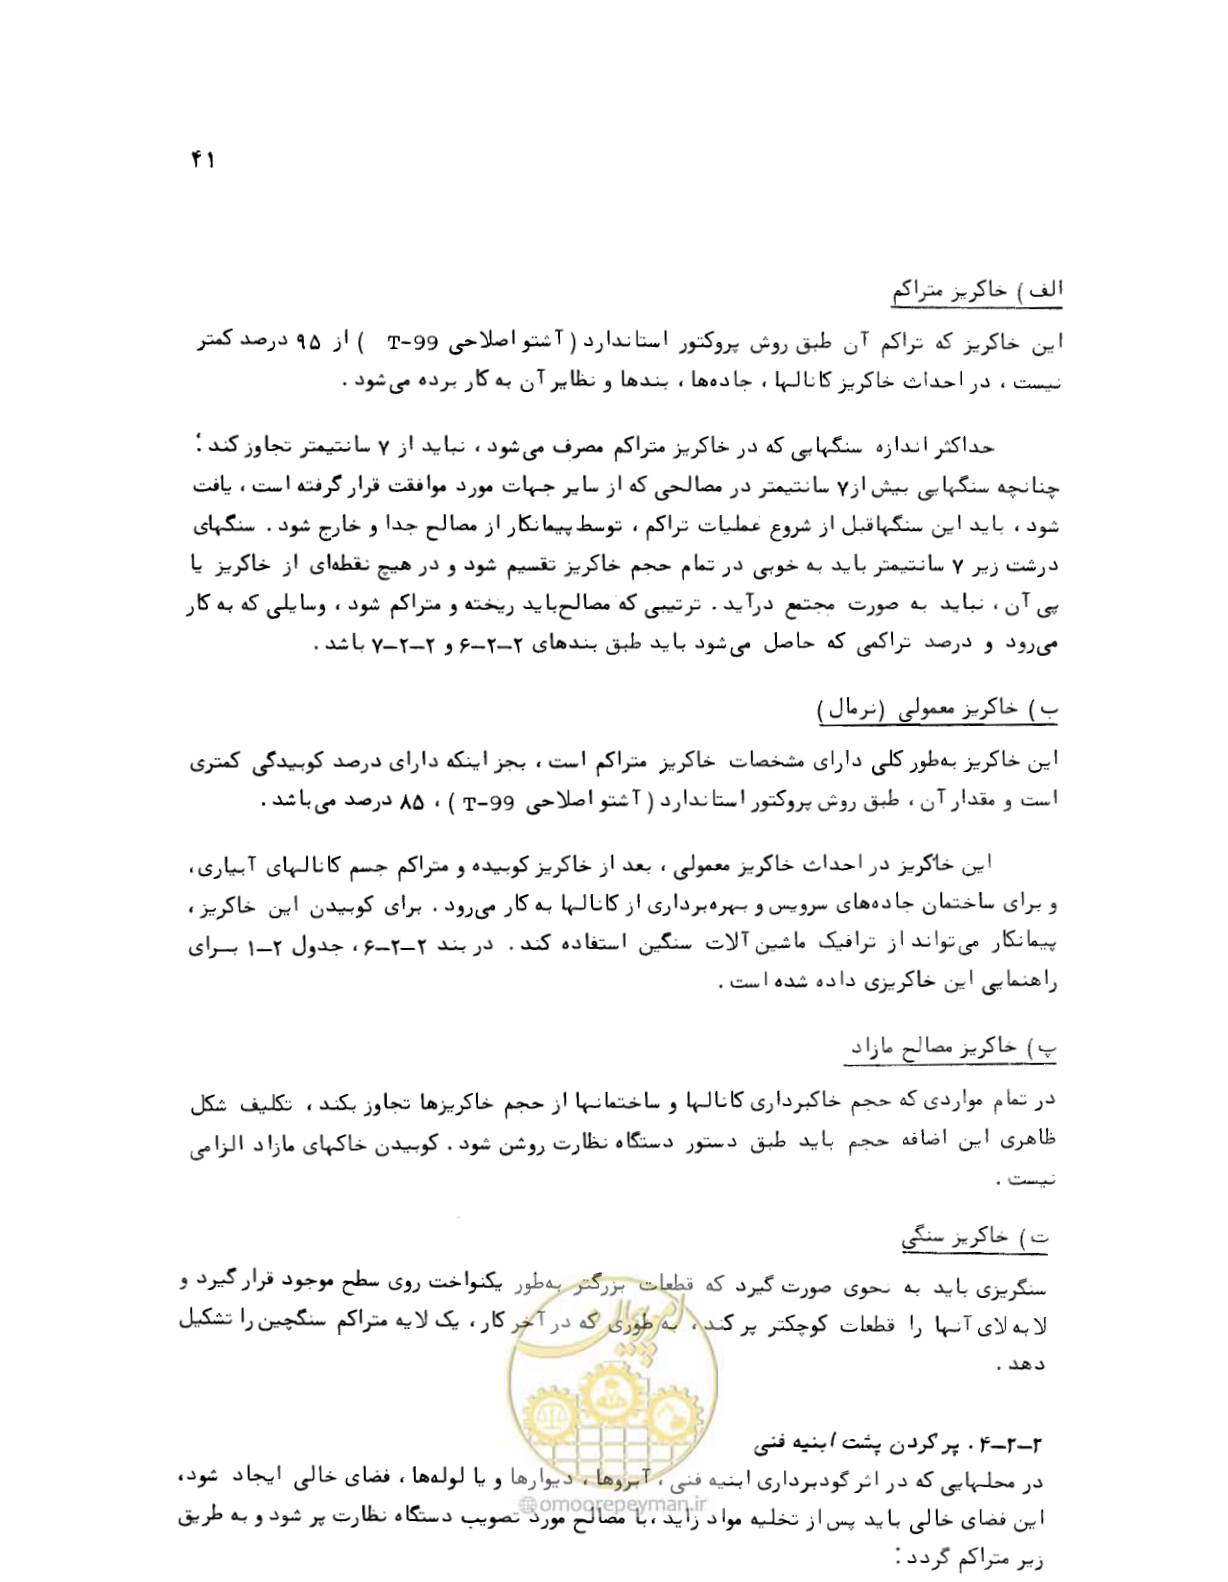 ۴۱
الف) خاکریز متراکم
این خاکریز که تراکم آن طبق روش پروکتور استاندارد (آشتو اصلاحی T-99 ) از ۹۵ درصد کمتر
نیست، در احداث خاکریز کانالها، جاده‌ها، بندها و نظایر آن به کار برده می‌شود.
حداکثر اندازه سنگهایی که در خاکریز متراکم مصرف می‌شود، نباید از ۷ سانتیمتر تجاوز کند؛
چنانچه سنگهایی بیش از ۷ سانتیمتر در مصالحی که از سایر جهات مورد موافقت قرار گرفته است، یافت
شود، باید این سنگها قبل از شروع عملیات تراکم، توسط پیمانکار از مصالح جدا و خارج شود. سنگهای
درشت زیر ۷ سانتیمتر باید به خوبی در تمام حجم خاکریز تقسیم شود و در هیچ نقطه‌ای از خاکریز یا
پی آن، نباید به صورت مجتمع درآید. ترتیبی که مصالح باید ریخته و متراکم شود، وسایلی که به کار
می‌رود و درصد تراکمی که حاصل می‌شود باید طبق بندهای ۲-۲-۶ و ۲-۲-۷ باشد.
ب) خاکریز معمولی (نرمال)
این خاکریز به‌طور کلی دارای مشخصات خاکریز متراکم است، بجز اینکه دارای درصد کوبیدگی کمتری
است و مقدار آن، طبق روش پروکتور استاندارد (آشتو اصلاحی T-99)، ۸۵ درصد می‌باشد.
این خاکریز در احداث خاکریز معمولی، بعد از خاکریز کوبیده و متراکم جسم کانالهای آبیاری،
و برای ساختمان جاده‌های سرویس و بهره‌برداری از کانالها به کار می‌رود. برای کوبیدن این خاکریز،
پیمانکار می‌تواند از ترافیک ماشین آلات سنگین استفاده کند. در بند ۲-۲-۶، جدول ۲-۱ برای
راهنمایی این خاکریزی داده شده است.
پ) خاکریز مصالح مازاد
در تمام مواردی که حجم خاکبرداری کانالها و ساختمانها از حجم خاکریزها تجاوز بکند، تکلیف شکل
ظاهری این اضافه حجم باید طبق دستور دستگاه نظارت روشن شود. کوبیدن خاکهای مازاد الزامی
نیست.
ت) خاکریز سنگی
سنگریزی باید به نحوی صورت گیرد که قطعات بزرگتر به‌طور یکنواخت روی سطح موجود قرار گیرد و
لابه لای آنها را قطعات کوچکتر پر کند، به طوری که در آخر کار، یک لایه متراکم سنگچین را تشکیل
دهد.
امور پیمان
۲-۲-۴. پر کردن پشت ابنیه فنی
در محلهایی که در اثر گودبرداری ابنیه فنی، آبروها، دیوارها و یا لوله‌ها، فضای خالی ایجاد شود،
omoorepeyman.ir
این فضای خالی باید پس از تخلیه مواد زاید، با مصالح مورد تصویب دستگاه نظارت پر شود و به طریق
زیر متراکم گردد: